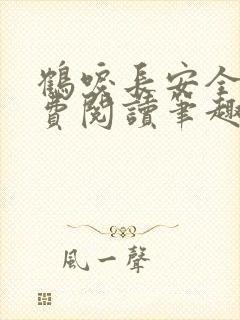 鶴唳長安全
費閱讀筆趣
風一聲